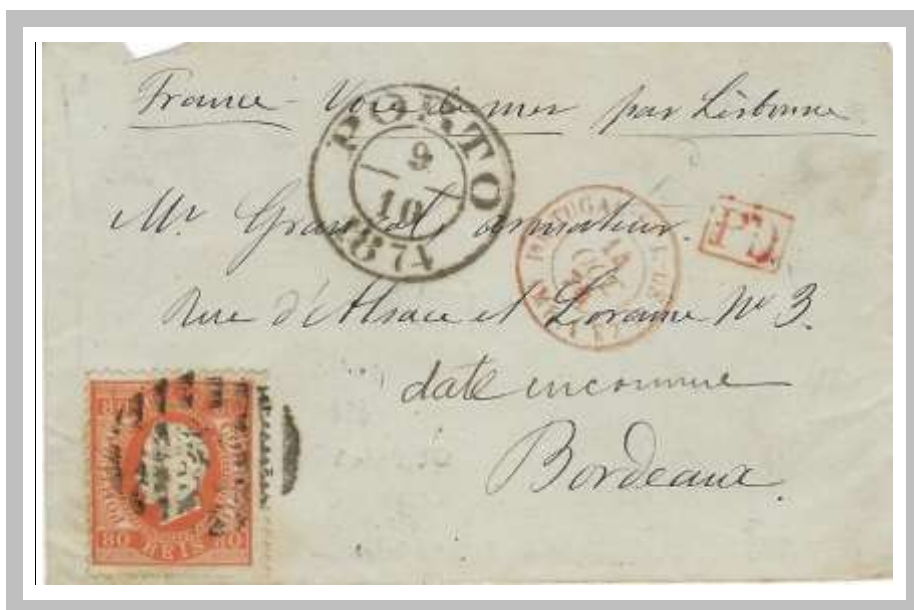 France - Voie de mer par Lisbonne
PORTO
9
10
1871
Mr armateur.
PD.
Rue d'Alsace et Loraine No 3.
date inconnue
Bordeaux.
80 REIS 80